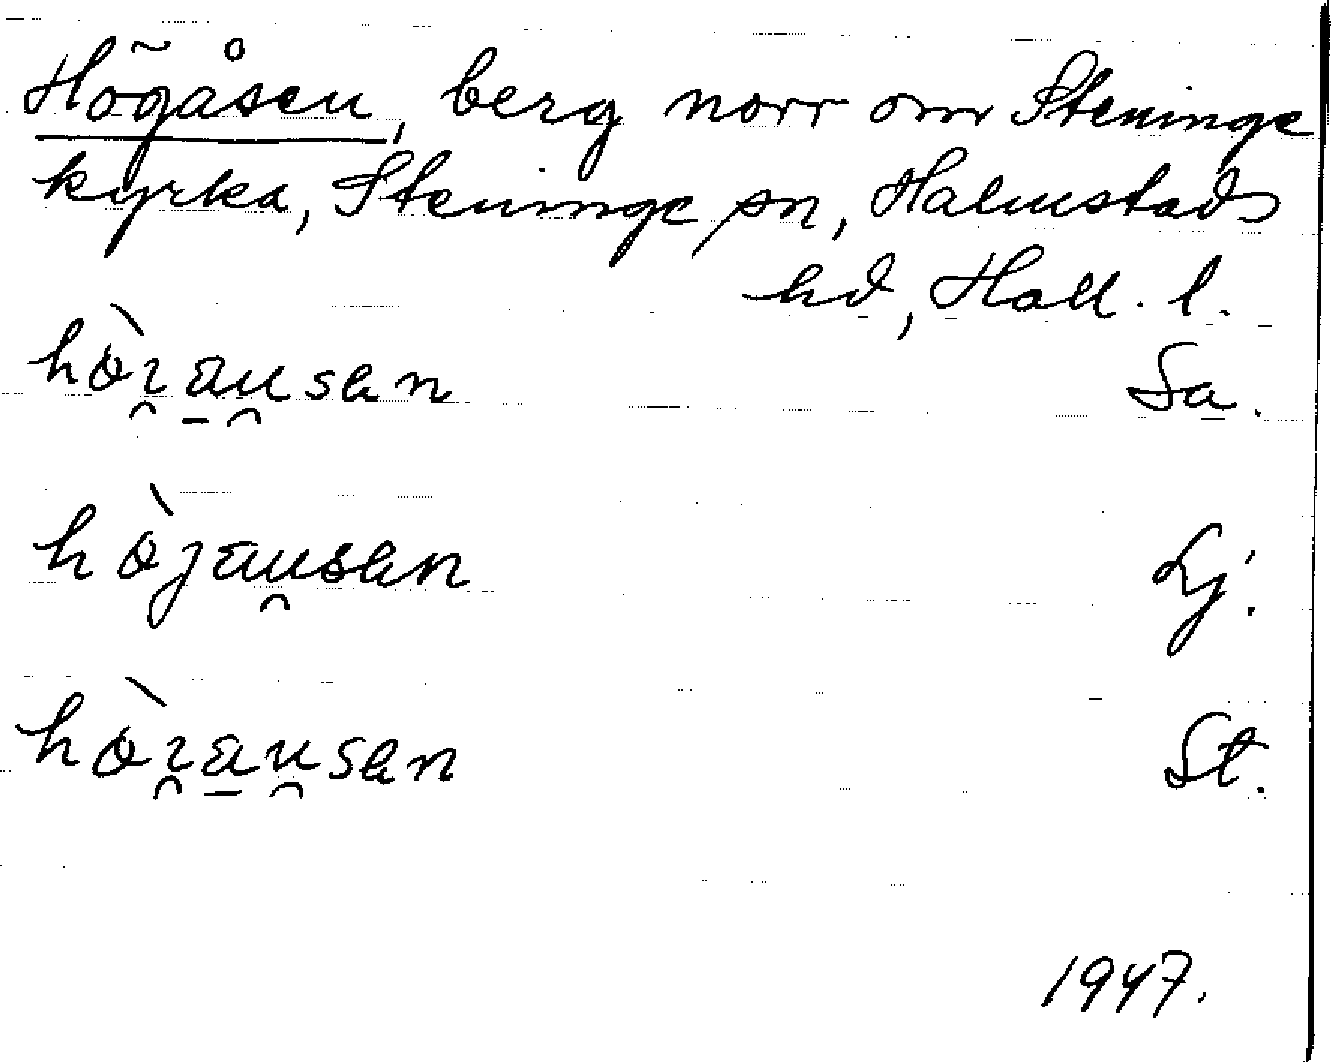 Högåsen, berg norr om Steninge
kyrka, Steninge sn, Halmstads
hd, Hall. l.
hòɪ̯a̱u̯sən Sa.
hòjau̯sən Lj.
hòɪ̯a̱u̯sən St.
1947.